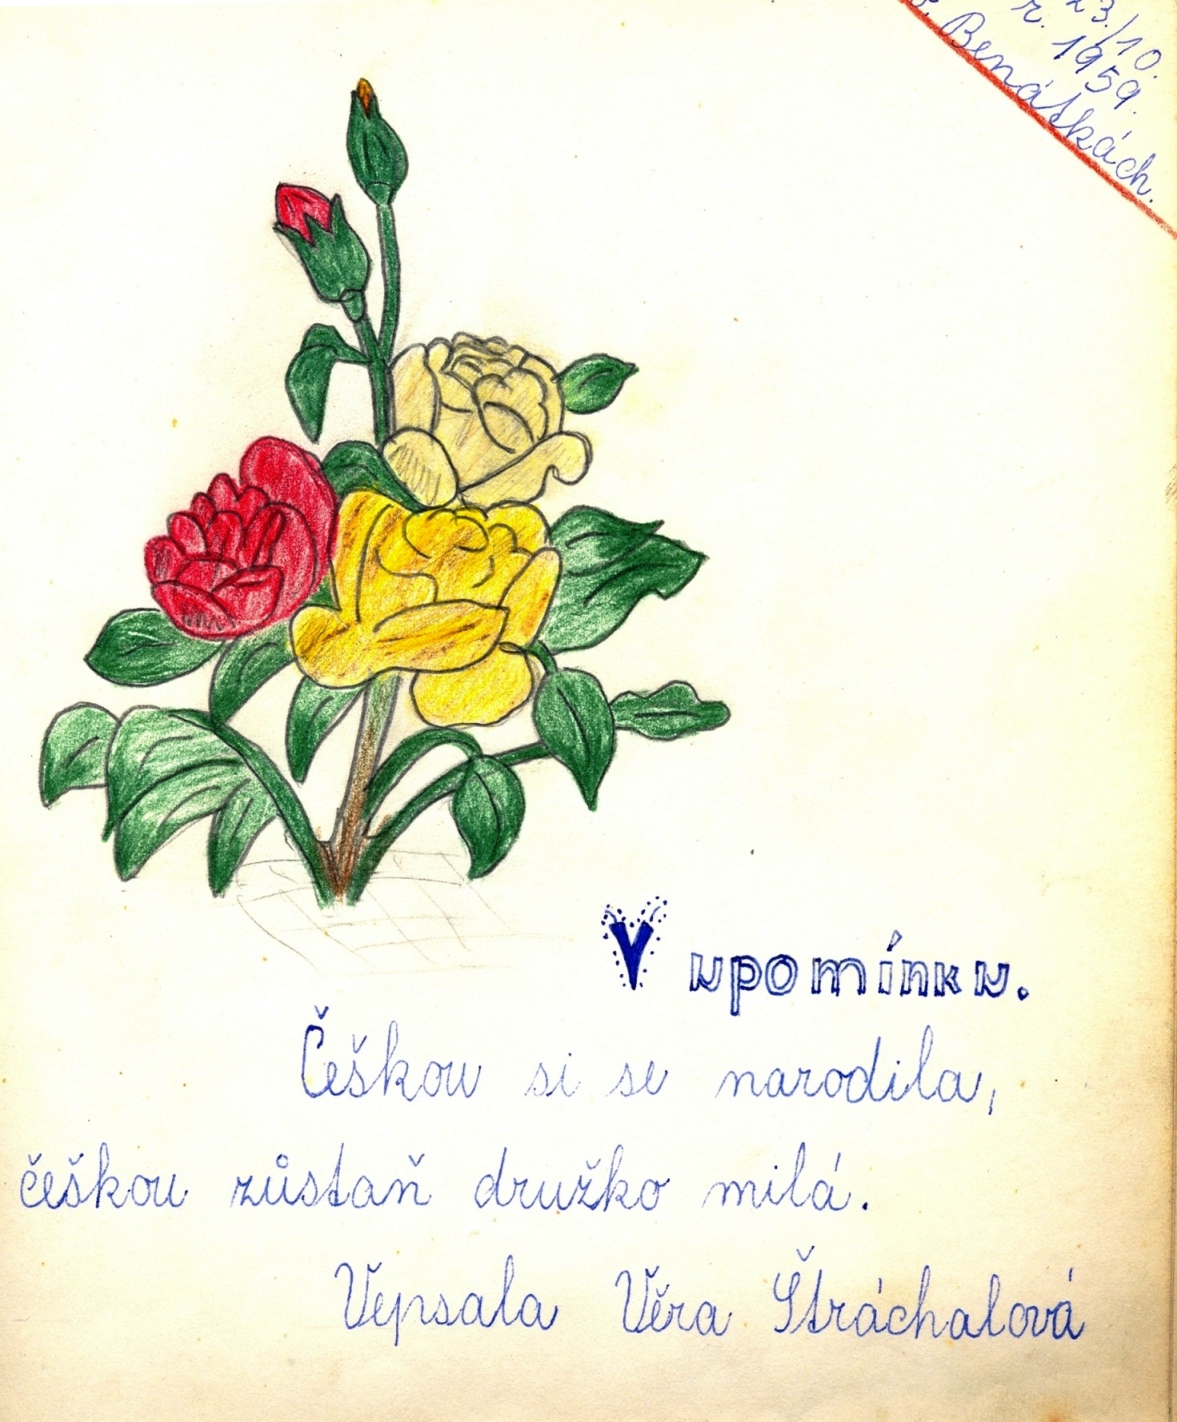 23./10.
r. 1959.
v Benátkách.
V upomínku.
Češkou si se narodila,
češkou zůstaň družko milá.
Vepsala Věra Štráchalová